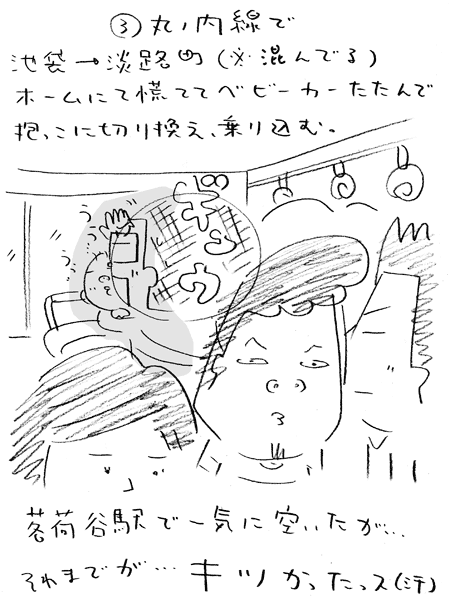 ③丸ノ内線で
池袋→淡路町(※混んでる)
ホームにて慌ててベビーカーたたんで
抱っこに切り換え、乗り込む。
ギュウ
う
う
茗荷谷駅で一気に空いたが…
それまでが…キツかったっス(ミテ)